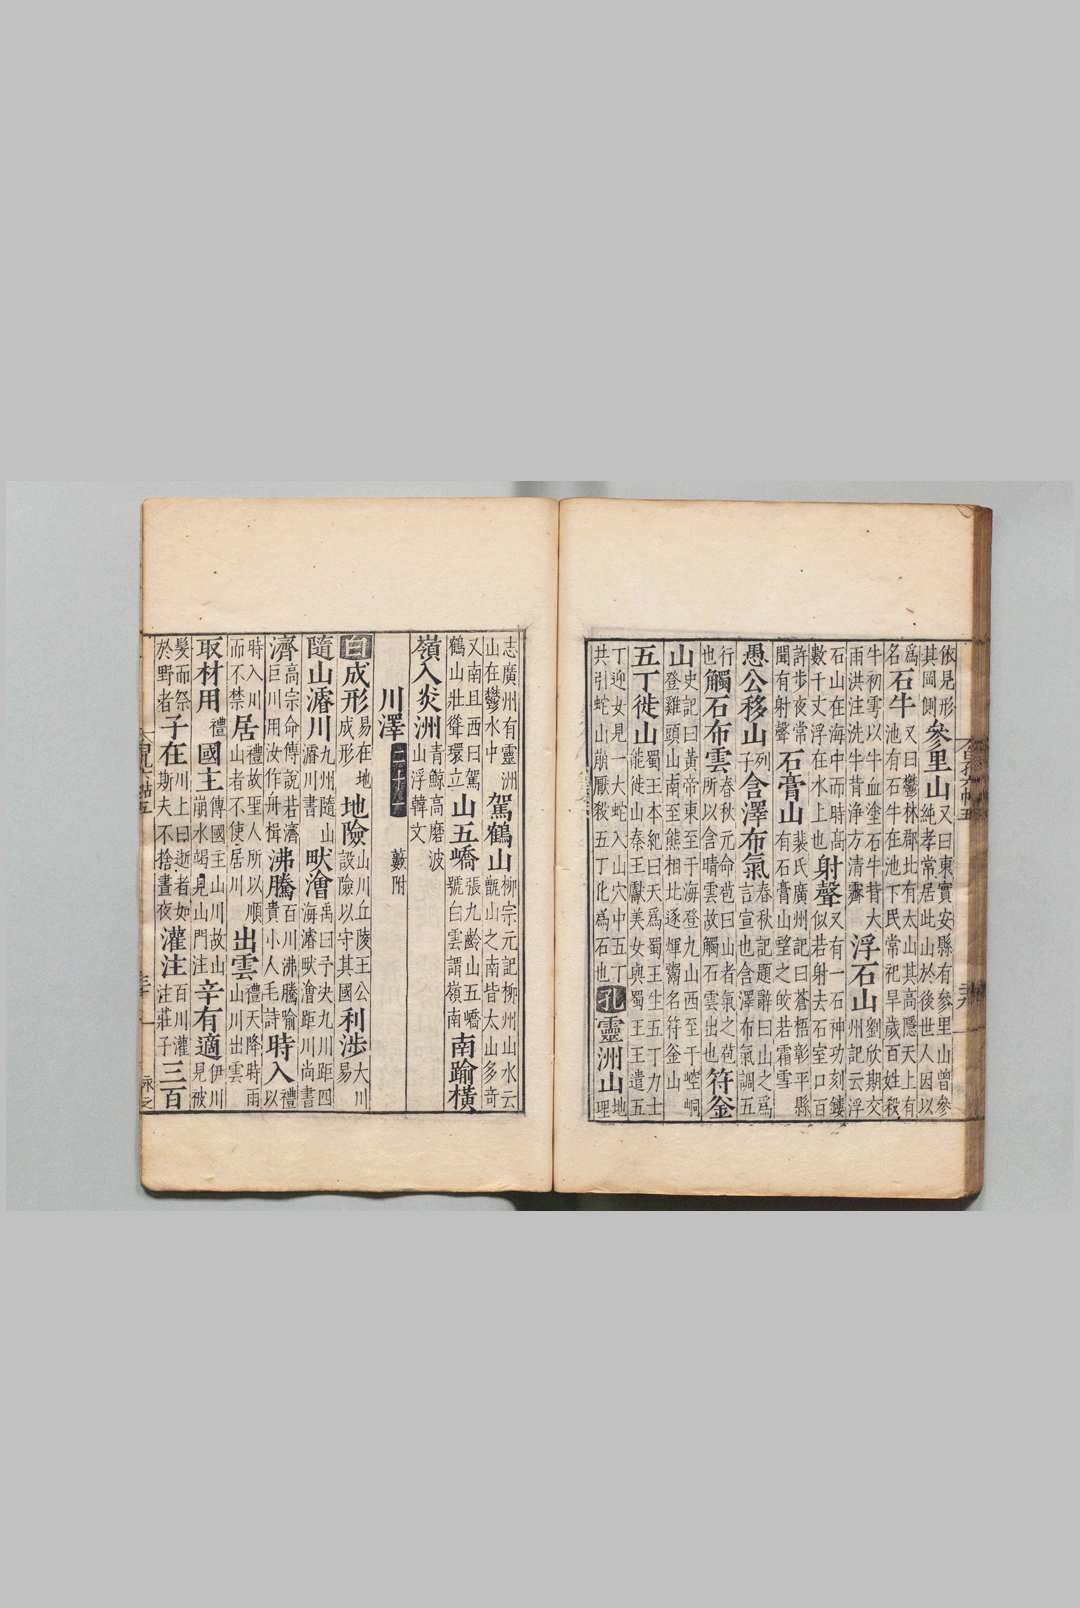 依見形其岡側參里山又曰東實安縣有參里山曾參純孝常居此山於後世人因以
爲名石牛又曰鬱林郡北有太山其高隱天上有池有石牛在池下民常祀旱歲百姓殺
牛祠雩以牛血塗石牛背大雨洪注洗牛背淨方清霽浮石山劉欣期交州記云浮
石山在海中而時高數千丈浮在水上也射聲又有一石神功刻鏤似若射去石室口百
許步夜常聞有射聲石膏山裴氏廣州記曰蒼梧彰平縣有石膏山望之皎若霜雪
愚公移山列子含澤布氣春秋記題辭曰山之爲言宣也含澤布氣調五
行也觸石布雲春秋元命苞曰山者氣之苞所以含晴雲故觸石雲出也符釜
山史記曰黃帝東至于海登九山西至于崆峒登雞頭山南至熊相北逐煇鬻名符釜山
五丁徙山蜀王本紀曰天爲蜀王生五丁力士能徙山秦王獻美女與蜀王王遣五
丁迎女見一大蛇入山穴中五丁共引蛇山崩厭殺五丁化爲石也孔靈洲山地理
志廣州有靈洲山在鬱水中駕鶴山柳宗元記柳州山水云甑山之南皆太山多奇
又南且西曰駕鶴山壯聳環立山五嶠張九齡山五嶠號白雲謂嶺南南踰橫
嶺入炎洲青鯨高磨波山浮韓文
川澤二十一藪附
白成形易在地成形地險山川丘陵王公設險以守其國利涉大川易
隨山濬川九州隨山濬川書畎澮禹曰予決九川距四海濬畎澮距川尚書
濟高宗命傅說若濟巨川用汝作舟楫沸騰百川沸騰喻貴小人毛詩時入禮以
時入川而不禁居禮故聖人所以順山者不使居川出雲禮天降時雨山川出雲
取材用禮國主傳國主山川故山崩水竭見山門注辛有適伊川見被
髮而祭於野者子在川上曰逝者如斯夫不捨晝夜灌注百川灌注莊子三百